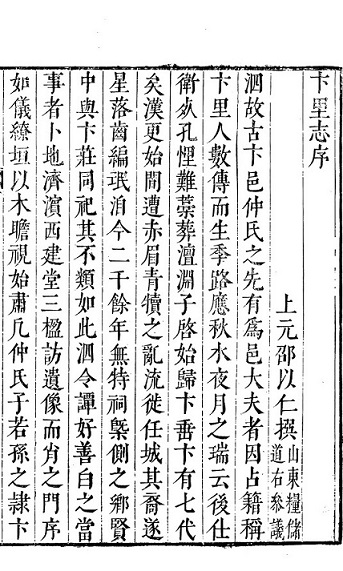 卞里志序
上元邵以仁撰山東糧儲道右參議
泗故古卞邑仲氏之先有爲邑大夫者因占籍稱
卞里人數傳而生季路應秋水夜月之瑞云後仕
衛死孔悝難藁葬澶淵子啓始歸卞畨卞有七代
矣漢更始間遭赤眉青犢之亂流徙任城其裔遂
星落齒編珉洎今二千餘年無特祠槩側之鄉賢
中與卞莊同祀其不類如此泗令譚好善白之當
事者卜地濟濵西建堂三楹訪遺像而肖之門序
如儀繚垣以木瞻視始肅凡仲氏子若孫之隷卞